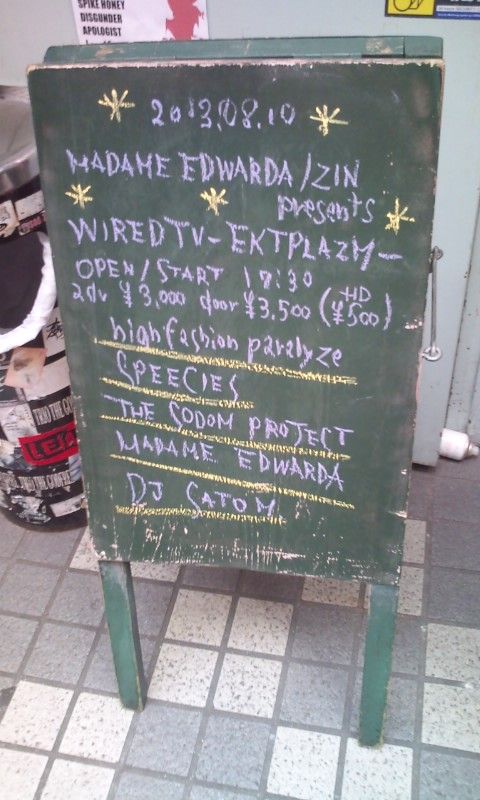 SPIKE HONEY
DISGUNDER
APOLOGIST
2013.08.10
MADAME EDWARDA/ZIN
presents
WIREDTV-EKTPLAZM-
OPEN/START 17:30
adv ¥3,000 door ¥3,500 (+HD ¥500)
high fashion paralyze
SPEECIES
THE SODOM PROJECT
MADAME EDWARDA
DJ SATOM